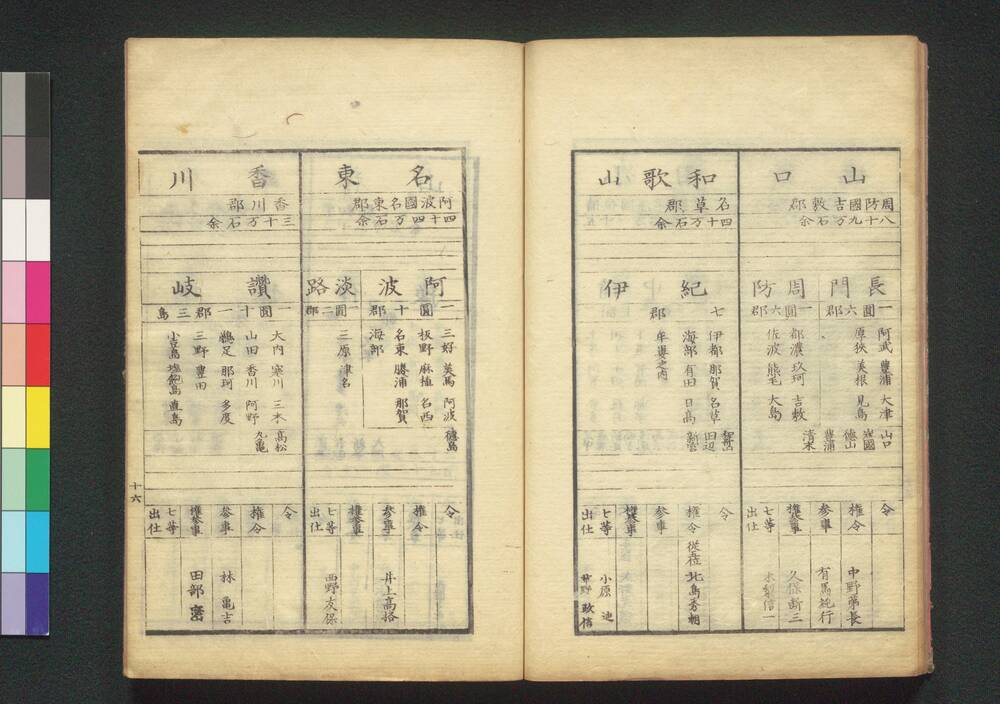 山口
周防國吉敷郡
八十九万石余
長門
周防
一圓六郡
一圓六郡
阿武 豊浦 大津
原狹 美祢 見島
都濃 玖珂 吉敷
佐波 熊毛 大島
山口
岩國
德山
豊浦
清末
令
權令 中野梧一
參事 有馬純行
權參事 久保断三
七等出仕 木梨信一
和歌山
名草郡
四十万石余
紀伊
七郡
伊都 那賀 名草
海部 有田 日高
牟婁之内
和歌山
田辺
新宮
令
權令 從五位 北島秀朝
參事
權參事
七等出仕 小原
名東
阿波國名東郡
四十四万石余
阿波
淡路
一圓十郡
一圓二郡
三好 美馬 阿波
板野 麻植 名西
名東 勝浦 那賀
海部
三原 津名
德島
令
權令
參事 井上高格
權參事
七等出仕 西野友保
香川
香川郡
三十万石余
讚岐
一圓十一郡三島
大内 寒川 三木
山田 香川 阿野
鵜足 那珂 多度
三野 豊田
小豆島 塩飽島 直島
高松
丸亀
令
權令
參事 林 亀吉
權參事 田部 密
七等出仕
十六